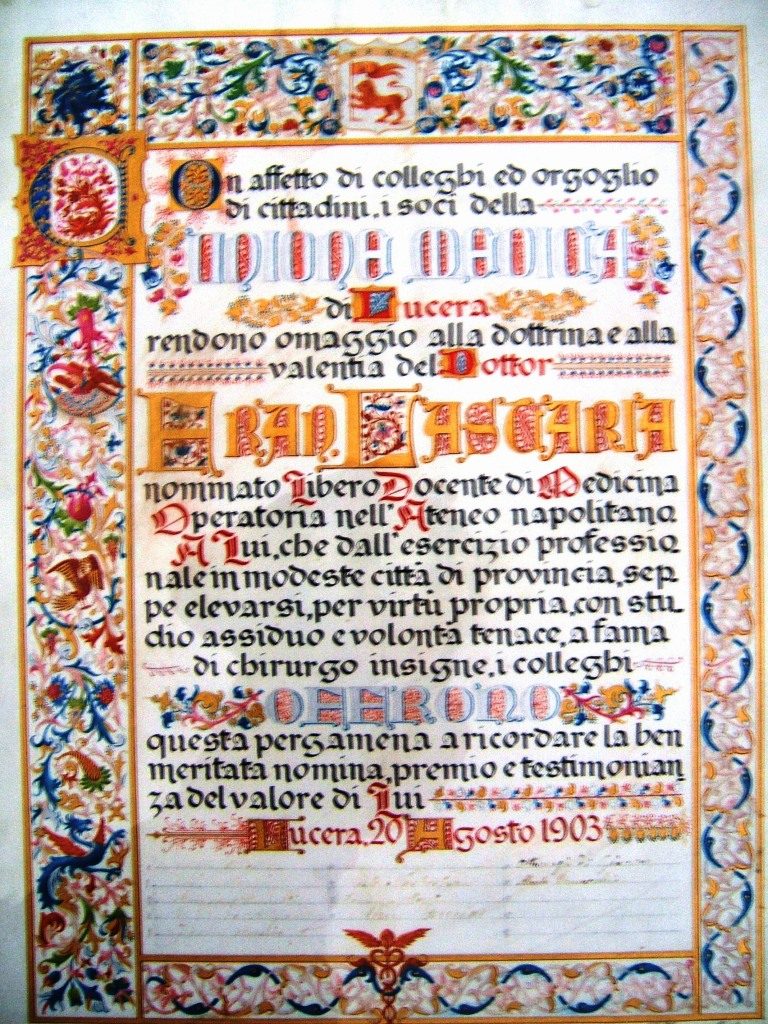 Con affetto di colleghi ed orgoglio
di cittadini, i soci della
UNIONE MEDICA
di Lucera
rendono omaggio alla dottrina e alla
valentia del Dottor
FRAN. LASTARIA
nominato Libero Docente di Medicina
Operatoria nell'Ateneo napolitano.
A Lui, che dall'esercizio professio
nale in modeste città di provincia, sep
pe elevarsi, per virtù propria, con stu
dio assiduo e volontà tenace, a fama
di chirurgo insigne, i colleghi
OFFRONO
questa pergamena a ricordare la ben
meritata nomina, premio e testimonian
za del valore di Lui
Lucera, 20 Agosto 1903